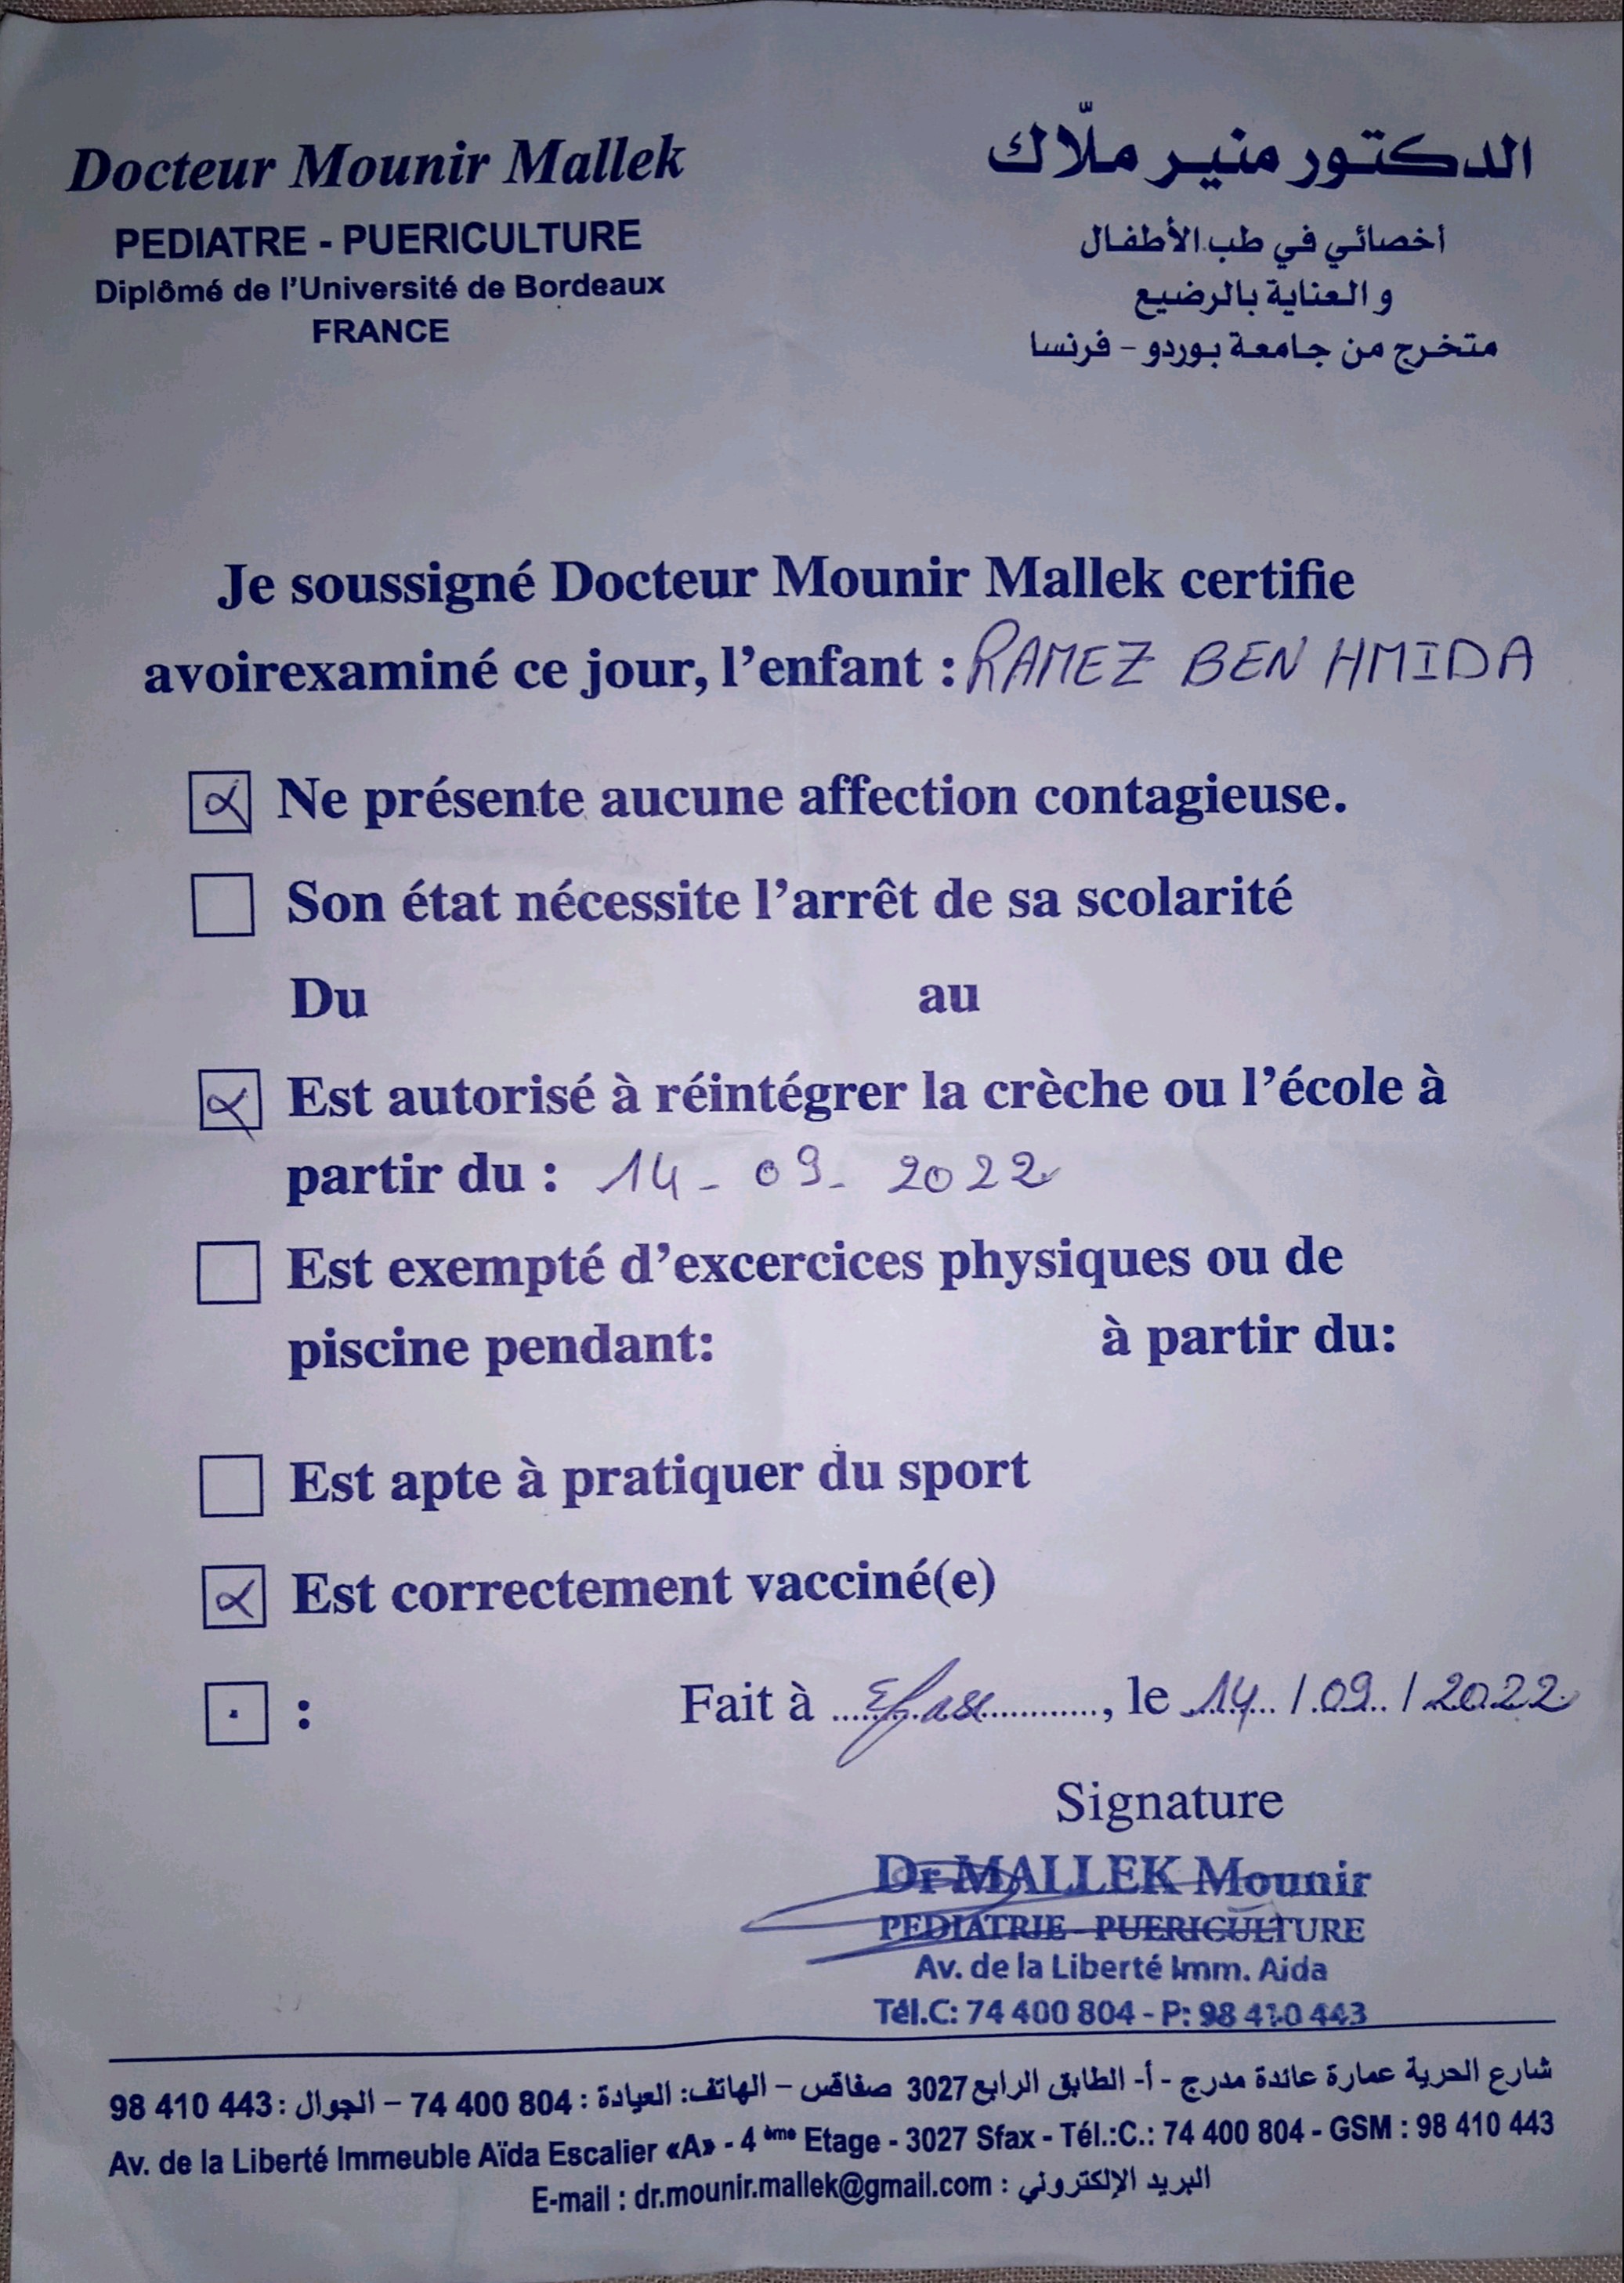 Docteur Mounir Mallek
PEDIATRE - PUERICULTURE
Diplômé de l'Université de Bordeaux
FRANCE
الدكتور منير ملّاك
أخصائي في طب الأطفال
و العناية بالرضيع
متخرج من جامعة بوردو - فرنسا
Je soussigné Docteur Mounir Mallek certifie
avoirexaminé ce jour, l'enfant : RAMEZ BEN HMIDA
Ne présente aucune affection contagieuse.
Son état nécessite l'arrêt de sa scolarité
Du au
Est autorisé à réintégrer la crèche ou l'école à
partir du : 14 - 09 - 2022
Est exempté d'excercices physiques ou de
piscine pendant: à partir du:
Est apte à pratiquer du sport
Est correctement vacciné(e)
: Fait à Sfax, le 14 / 09 / 2022
Signature
Dr MALLEK Mounir
PEDIATRIE - PUERICULTURE
Av. de la Liberté Imm. Aida
Tél.C: 74 400 804 - P: 98 410 443
شارع الحرية عمارة عائدة مدرج -أ- الطابق الرابع 3027 صفاقس - الهاتف: العيادة : 804 400 74 - الجوال : 443 410 98
Av. de la Liberté Immeuble Aïda Escalier «A» - 4 ème Etage - 3027 Sfax - Tél.:C.: 74 400 804 - GSM : 98 410 443
E-mail : dr.mounir.mallek@gmail.com : البريد الإلكتروني